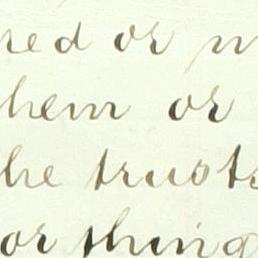 red or m
hem or
he trusts
or thing